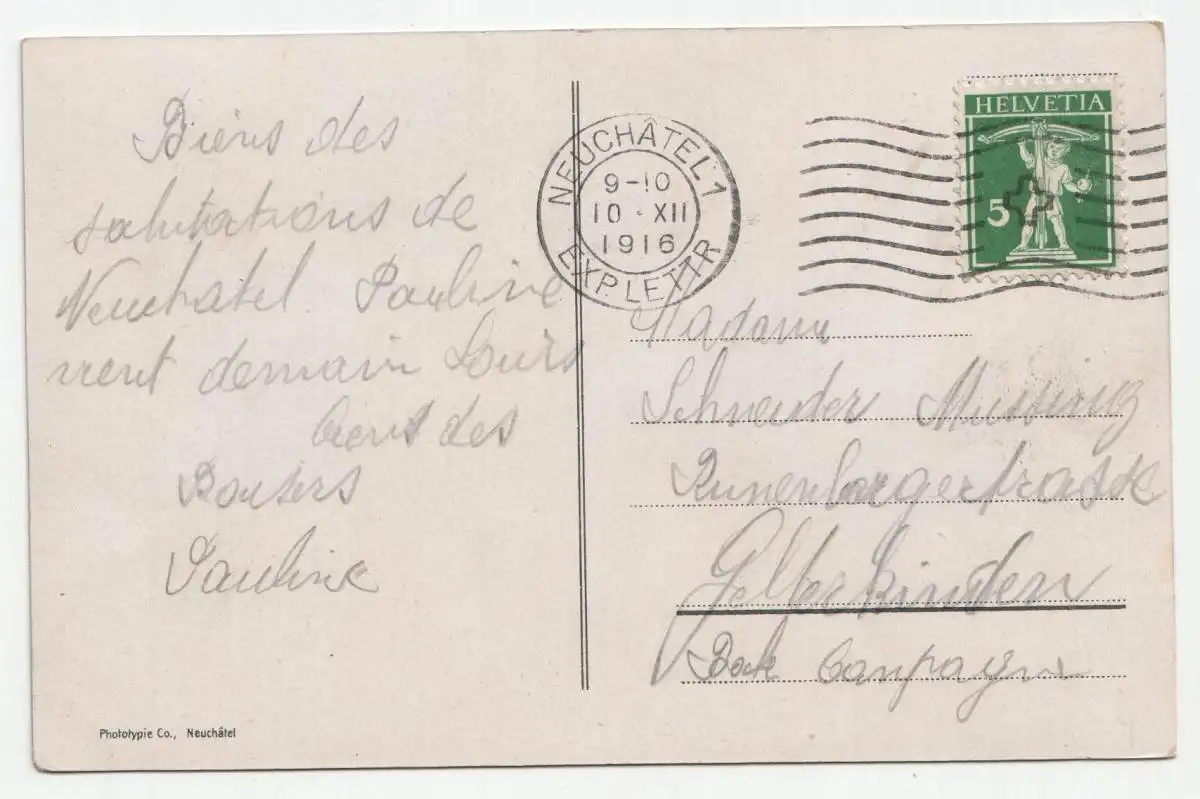 Biens des
salutations de
Neuchatel. Pauline
vient demain Louis
biens des
Baisers
Pauline
Phototypie Co., Neuchâtel
NEUCHÂTEL 1
9-10
10 · XII
1916
EXP. LETTR
HELVETIA
5
Madame
Schneider Mussing
Gelterkinden
Bale Campagne